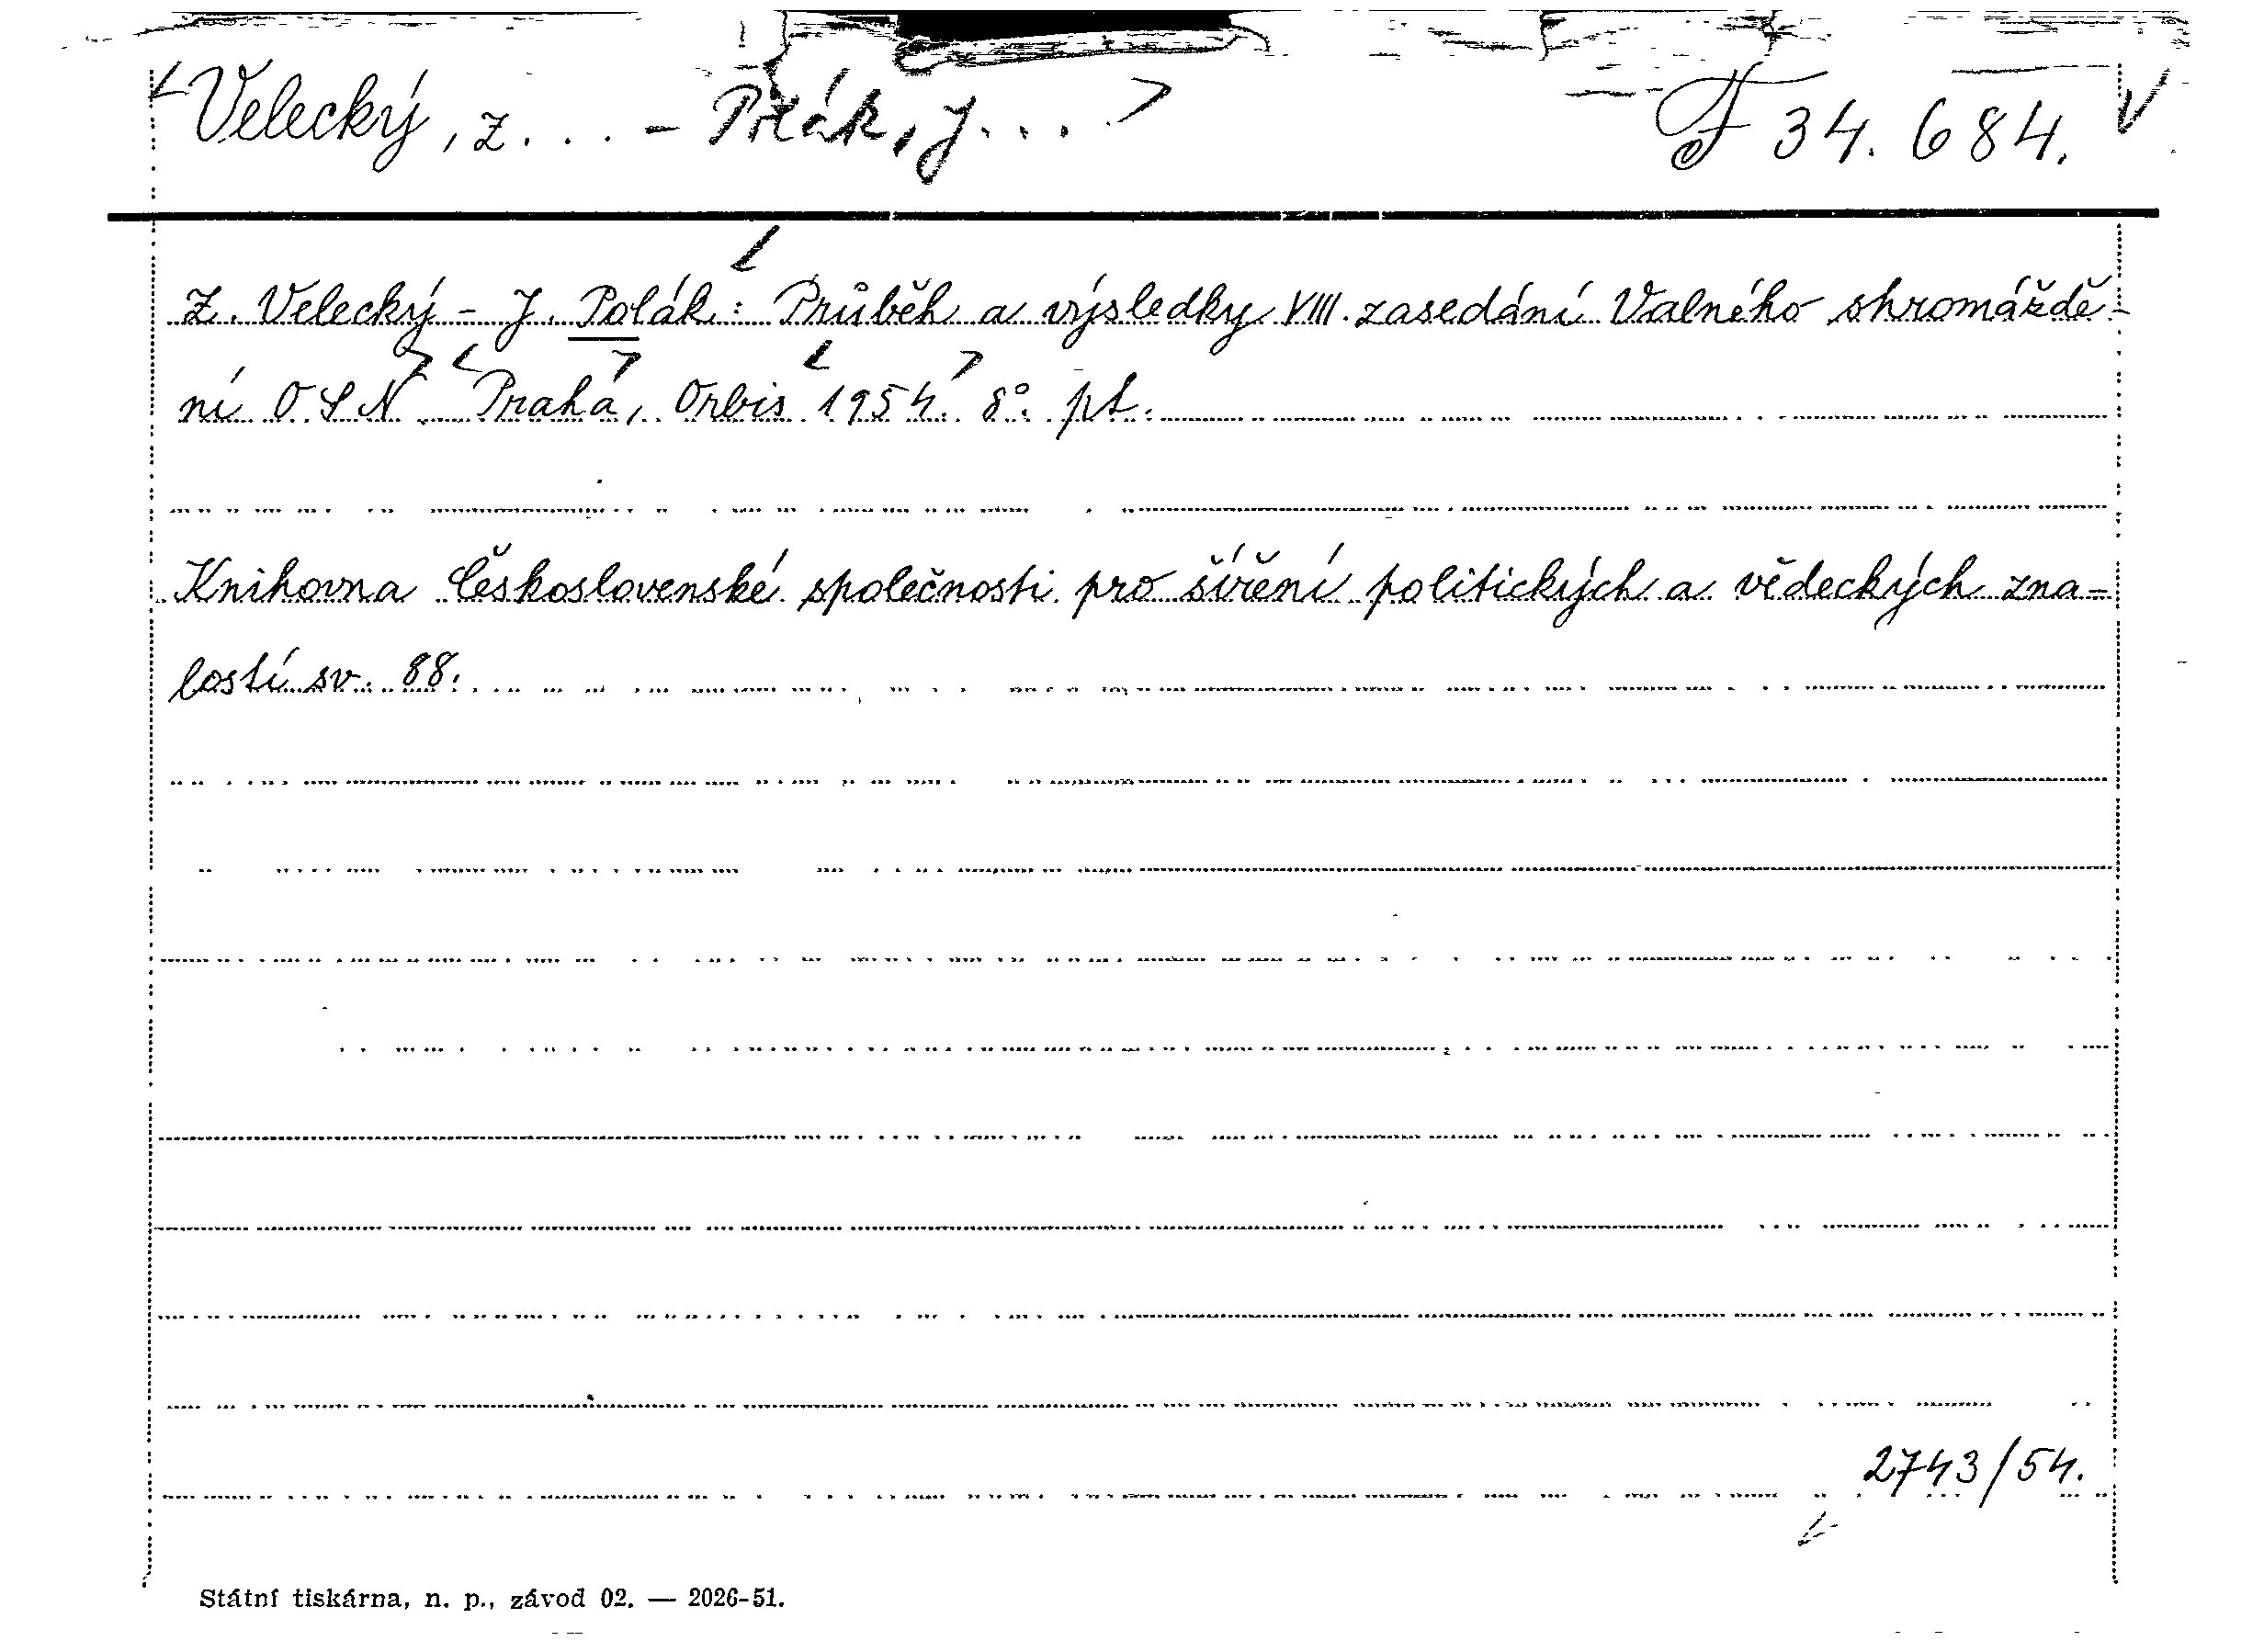 Velecký, Z... - Polák, J... F 34.684.
Z. Velecký - J. Polák: Průběh a výsledky VIII. zasedání Valného shromáždě-
ní OSN Praha, Orbis 1954. 8°. pt.
Knihovna Československé společnosti pro šíření politických a vědeckých zna-
lostí sv. 88.
2743/54.
Státní tiskárna, n. p., závod 02. — 2026-51.